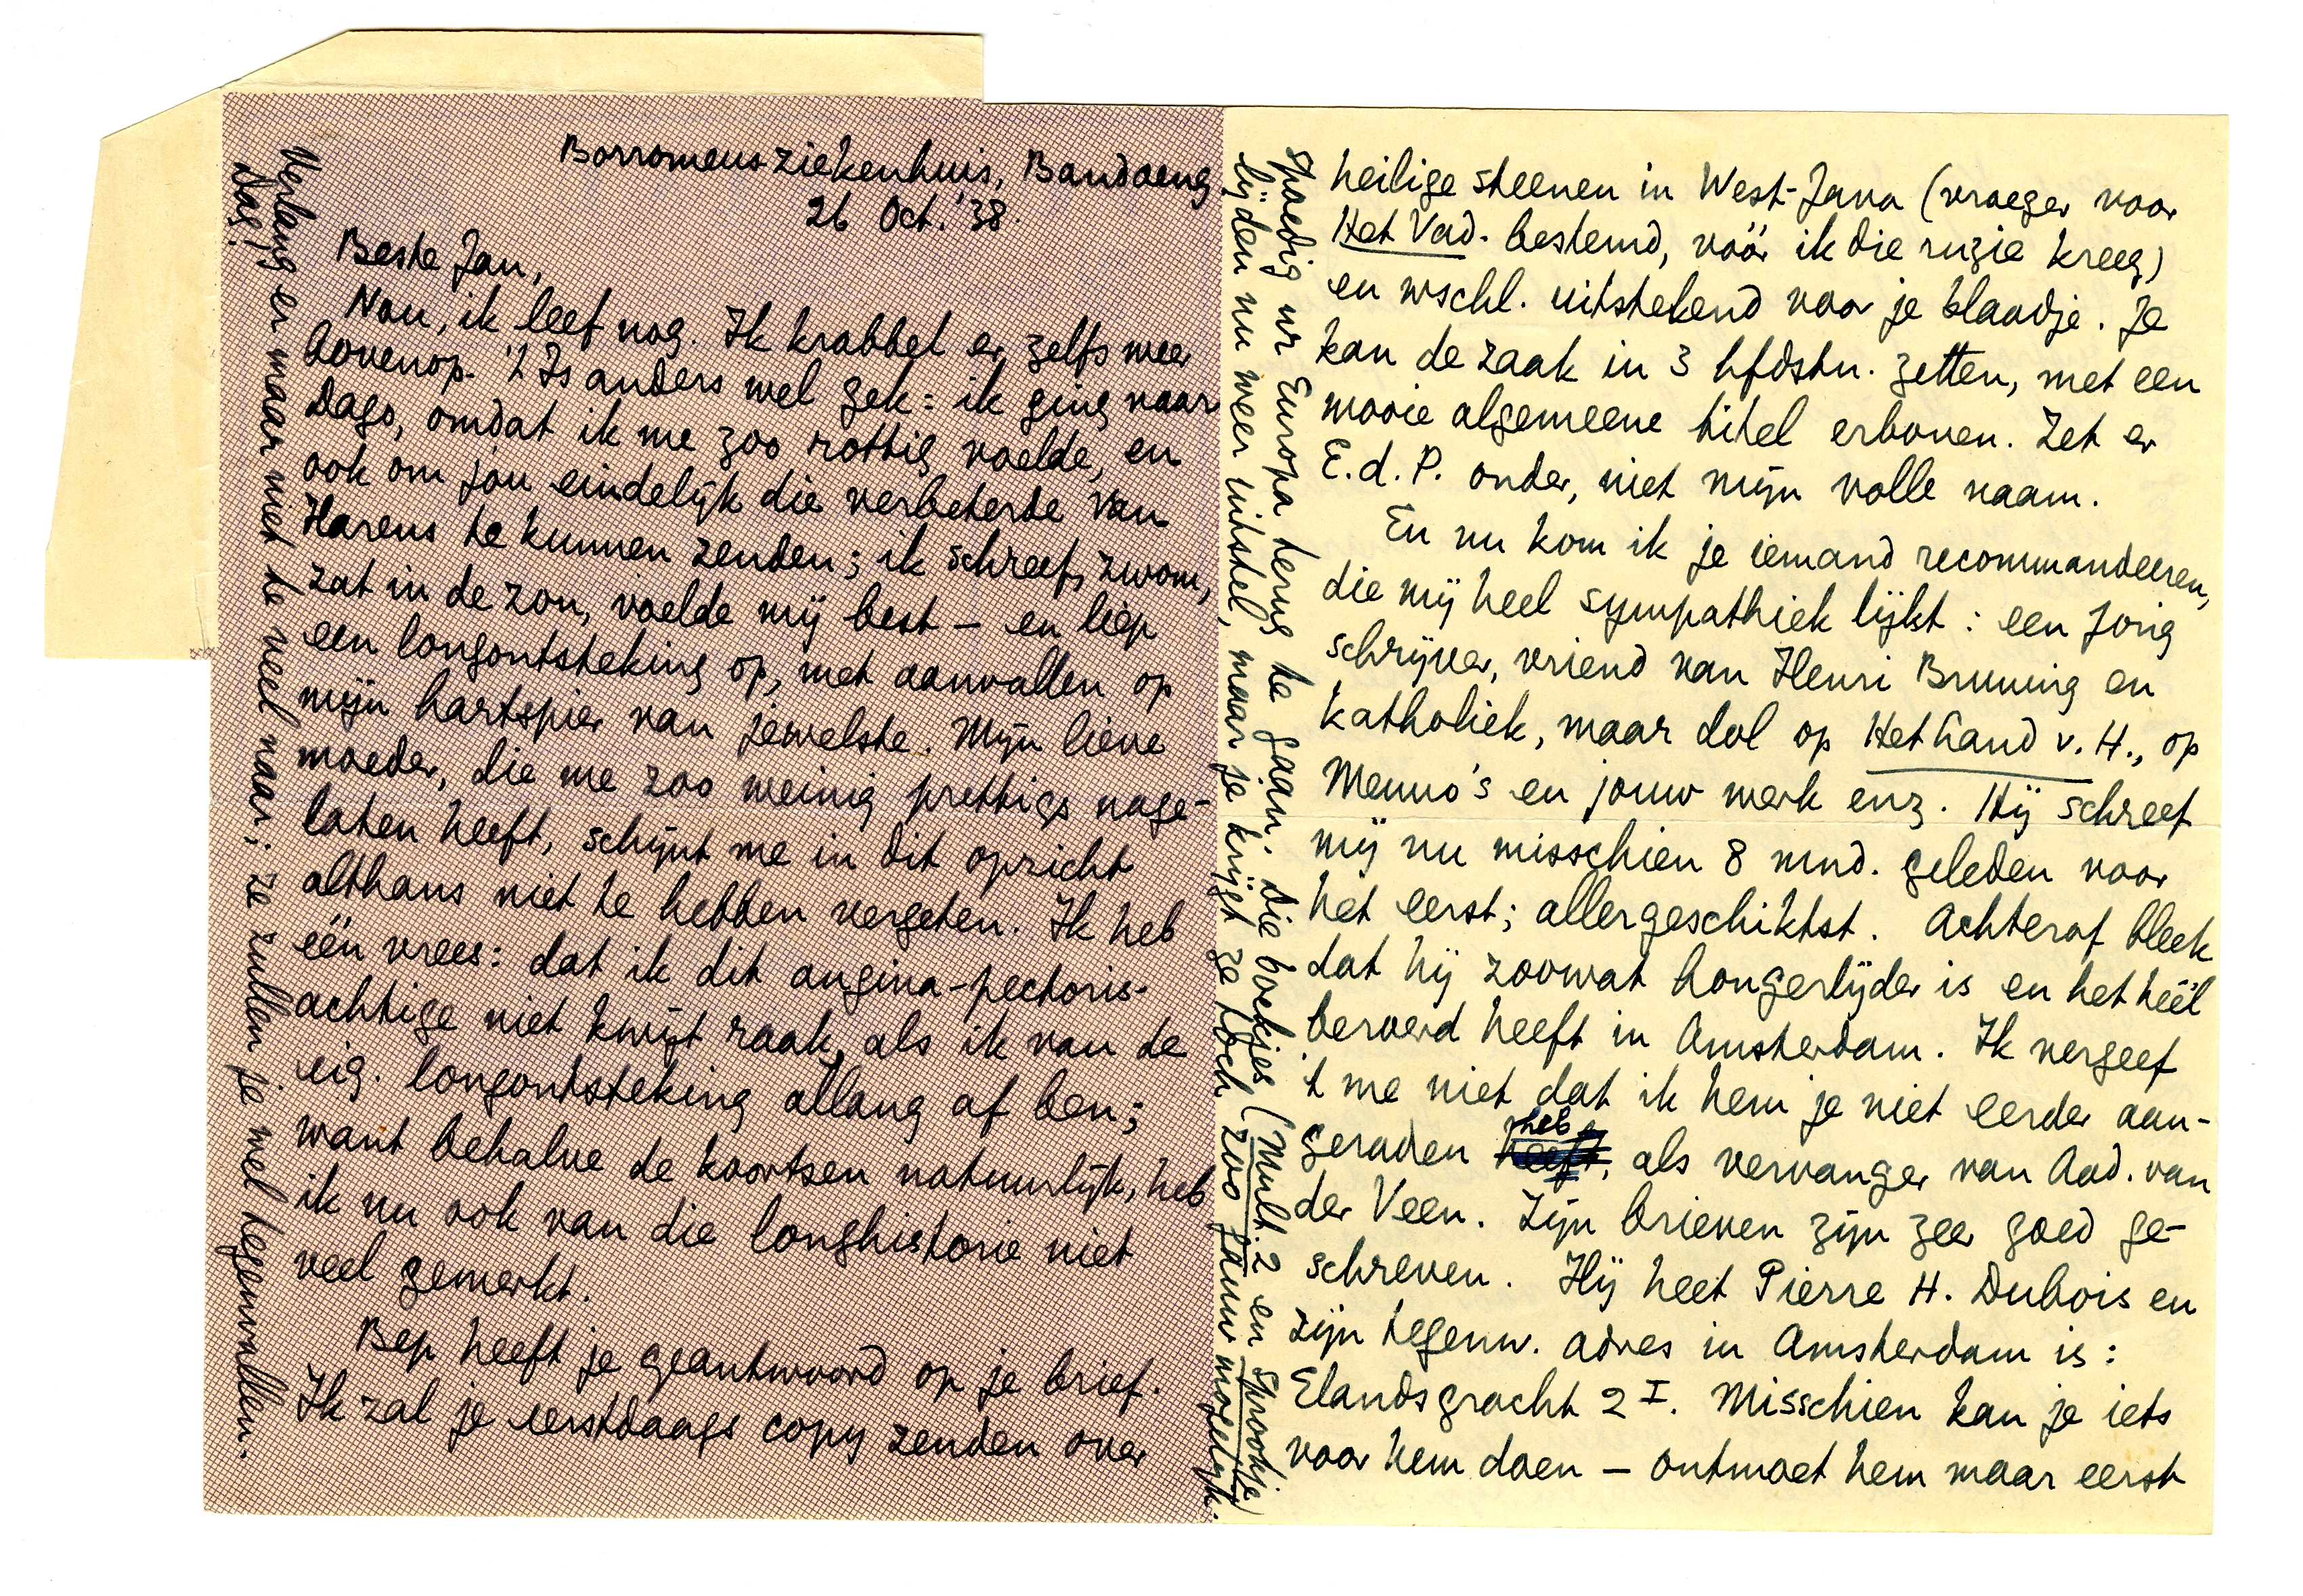 Borromeus-ziekenhuis, Bandoeng
26 Oct. '38.
Beste Jan,
Nou, ik leef nog. Ik krabbel er zelfs weer
bovenop. 't Is anders wel gek: ik ging naar
Dago, omdat ik me zoo rottig voelde, en
ook om jou eindelijk die verbeterde Van
Harens te kunnen zenden; ik schreef, zwom,
zat in de zon, voelde mij best – en liep
een longontsteking op, met aanvallen op
mijn hartspier van jewelste. Mijn lieve
moeder, die me zoo weinig prettigs nage-
laten heeft, schijnt me in dit opzicht
althans niet te hebben vergeten. Ik heb
één vrees: dat ik dit angina-pectoris-
achtige niet kwijt raak, als ik van de
eig. longontsteking allang af ben;
want behalve de koortsen natuurlijk, heb
ik nu ook van die longhistorie niet
veel gemerkt.
Bep heeft je geantwoord op je brief.
Ik zal je eerstdaags copy zenden over
heilige steenen in West-Java (vroeger voor
Het Vad. bestemd, vóór ik die ruzie kreeg)
en wschl. uitstekend voor je blaadje. Je
kan de zaak in 3 hfdstn. zetten, met een
mooie algemeene titel erboven. Zet er
E.d.P. onder, niet mijn volle naam.
En nu kom ik je iemand recommandeeren,
die mij heel sympathiek lijkt: een jong
schrijver, vriend van Henri Bruning en
katholiek, maar dol op Het Land v. H., op
Menno's en jouw werk enz. Hij schreef
mij nu misschien 8 mnd. geleden voor
het eerst; allergeschiktst. Achteraf bleek
dat hij zoowat hongerlijder is en het héél
beroerd heeft in Amsterdam. Ik vergeef
't me niet dat ik hem je niet eerder aan-
geraden heb, als vervanger van Aad. van
der Veen. Zijn brieven zijn zeer goed ge-
schreven. Hij heet Pierre H. Dubois en
zijn tegenw. adres in Amsterdam is:
Elandsgracht 2 I. Misschien kan je iets
voor hem doen – ontmoet hem maar eerst
spoedig nr Europa terug te gaan. Die boekjes (Mult. 2 en Sprookje)
lijden nu weer uitstel, maar je krijgt ze toch zoo gauw mogelijk.
Verlang er maar niet te veel naar; ze zullen je wel tegenvallen.
Dag!